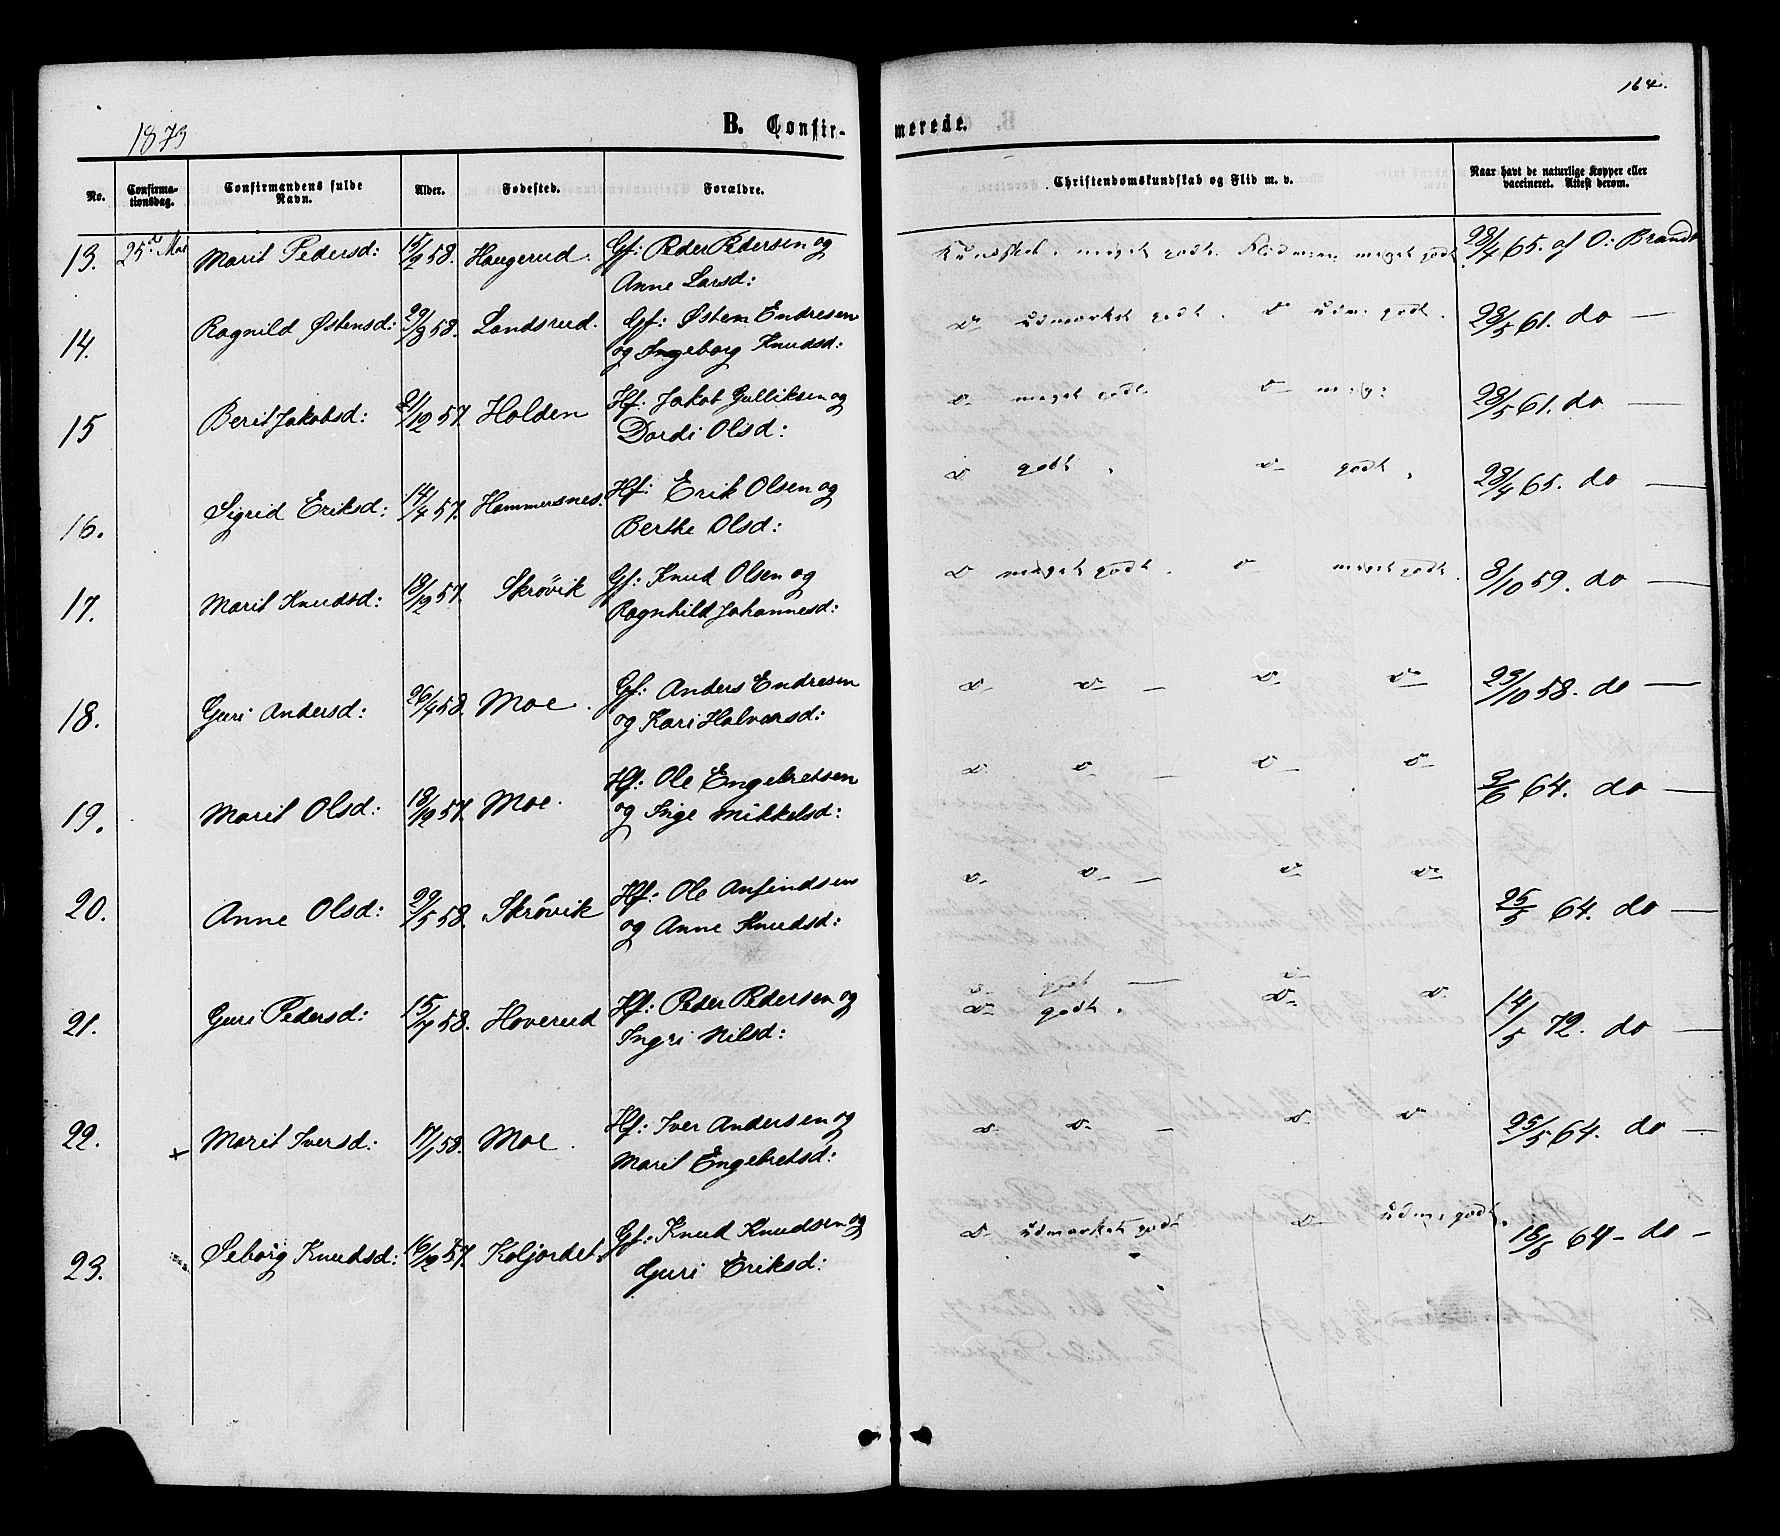 164.
1873
B. Confir-
merede.
No.
Confirma-
tionsdag.
Confirmandens fulde
Navn.
Alder.
Fødested.
Forældre.
Christendomskundskab og Flid m. v.
Naar havt de naturlige Kopper eller
vaccineret. Attest derom.
13. 25 Mai Marit Pedersd: 15/2 58. Haugerud. Gf: Peder Pedersen og Kundskab. meget godt. Flid meget godt 28/4 65. af O: Brandt
Anne Larsd:
14. Ragnild Østensd: 29/3 58. Landsrud. Gf: Østen Endresen D. udmærket godt. D udm. godt. 28/5 61. do —
og Ingeborg Knudsd:
15 Berit Jakobsd: 21/12 57. Holden Hf: Jakob Gulliksen og D. meget godt. D 28/5 61. do —
Dordi Olsd:
16. Sigrid Eriksd: 14/4 57. Hammersnes. Hf: Erik Olsen og D godt. D godt. 28/4 65. do —
Berthe Olsd:
17. Marit Knudsd: 18/12 57. Skrövik Gf: Knud Olsen og D meget godt. D meget godt. 8/10 59. do —
Ragnhild Johannesd:
18. Guri Andersd: 26/4 58. Moe. Gf: Anders Endresen D. D — D. D 29/10 58. do —
og Kari Halvorsd:
19. Marit Olsd: 18/12 57. Moe. Hf: Ole Engebretsen D. D — D D 9/6 64. do —
og Inge Mikkelsd:
20. Anne Olsd: 29/5 58. Skrövik Hf: Ole Anfindsen D. D — D D 25/5 64. do —
og Anne Knudsd:
D. godt — D
21. Guri Pedersd: 15/7 58. Hoverud Hf: Peder Pedersen og D godt. D. D. 14/5 72. do —
Ingri Nilsd:
22. + Marit Iversd: 17/1 58. Moe. Hf: Iver Andersen og D. D — D D 25/5 64. do —
Marit Engebretsd:
23. Seborg Knudsd: 16/12 57. Koljordet. Gf: Knud Knudsen og D. udmærket godt D udm. godt. 18/5 64 - do —
Guri Eriksd: